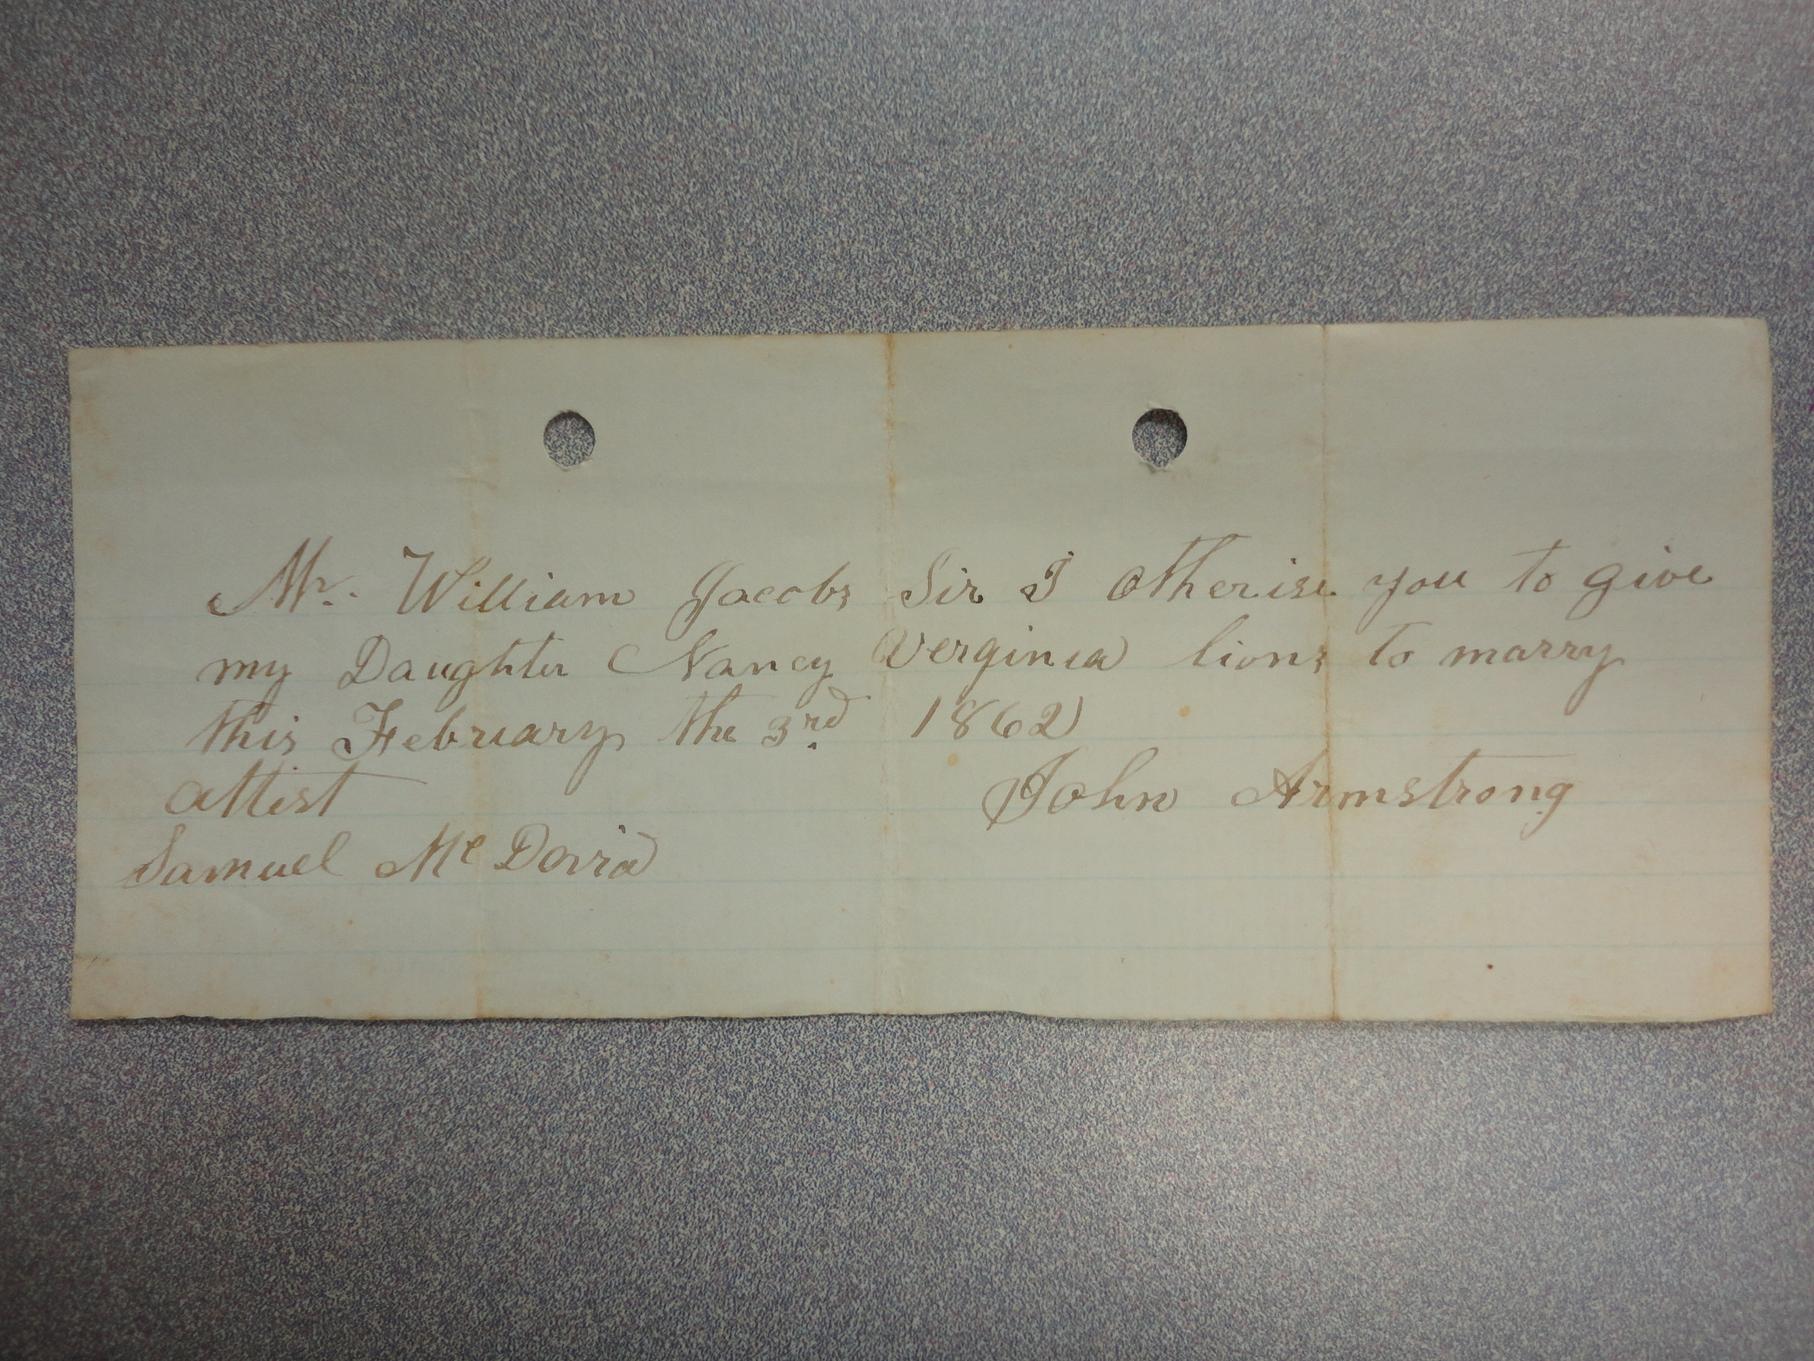 Mr. William Jacobs Sir I Otherise you to give
my Daughter Nancy Verginia lions to marry
this February the 3rd 1862
attest John Armstrong
Samuel Mc David